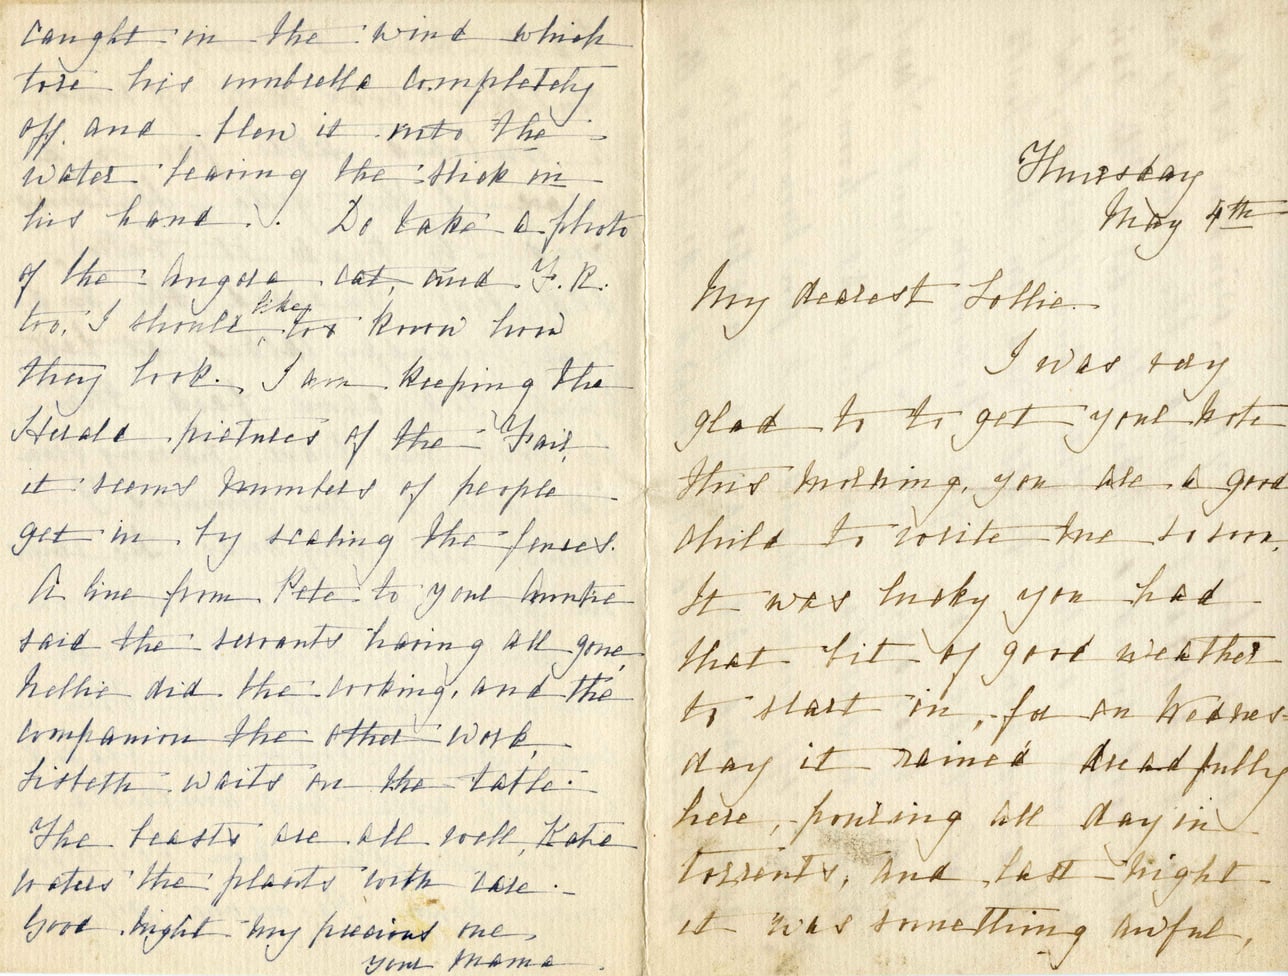 caught in the wind which
tore his umbrella completely
off and blew it into the
water leaving the stick in
his hand. Do take a photo
of the Angora cat, and F. R.
too. I should like to know how
they look. I am keeping the
Herald pictures of the Fair,
it seems numbers of people
get in by scaling the fences.
A line from Pete to your Auntie
said the servants having all gone,
Nellie did the cooking, and the
companion the other work,
Lisbeth waits on the table.
The beasts are all well, Katie
waters the plants with care.
Good night my precious one,
your Mama.
Thursday
May 4th
My dearest Lollie.
I was very
glad to to get your note
this morning, you are a good
child to write me so soon.
It was lucky you had
that bit of good weather
to start in, for on Wednes-
day it rained dreadfully
here, pouring all day in
torrents, and last night
it was something awful,